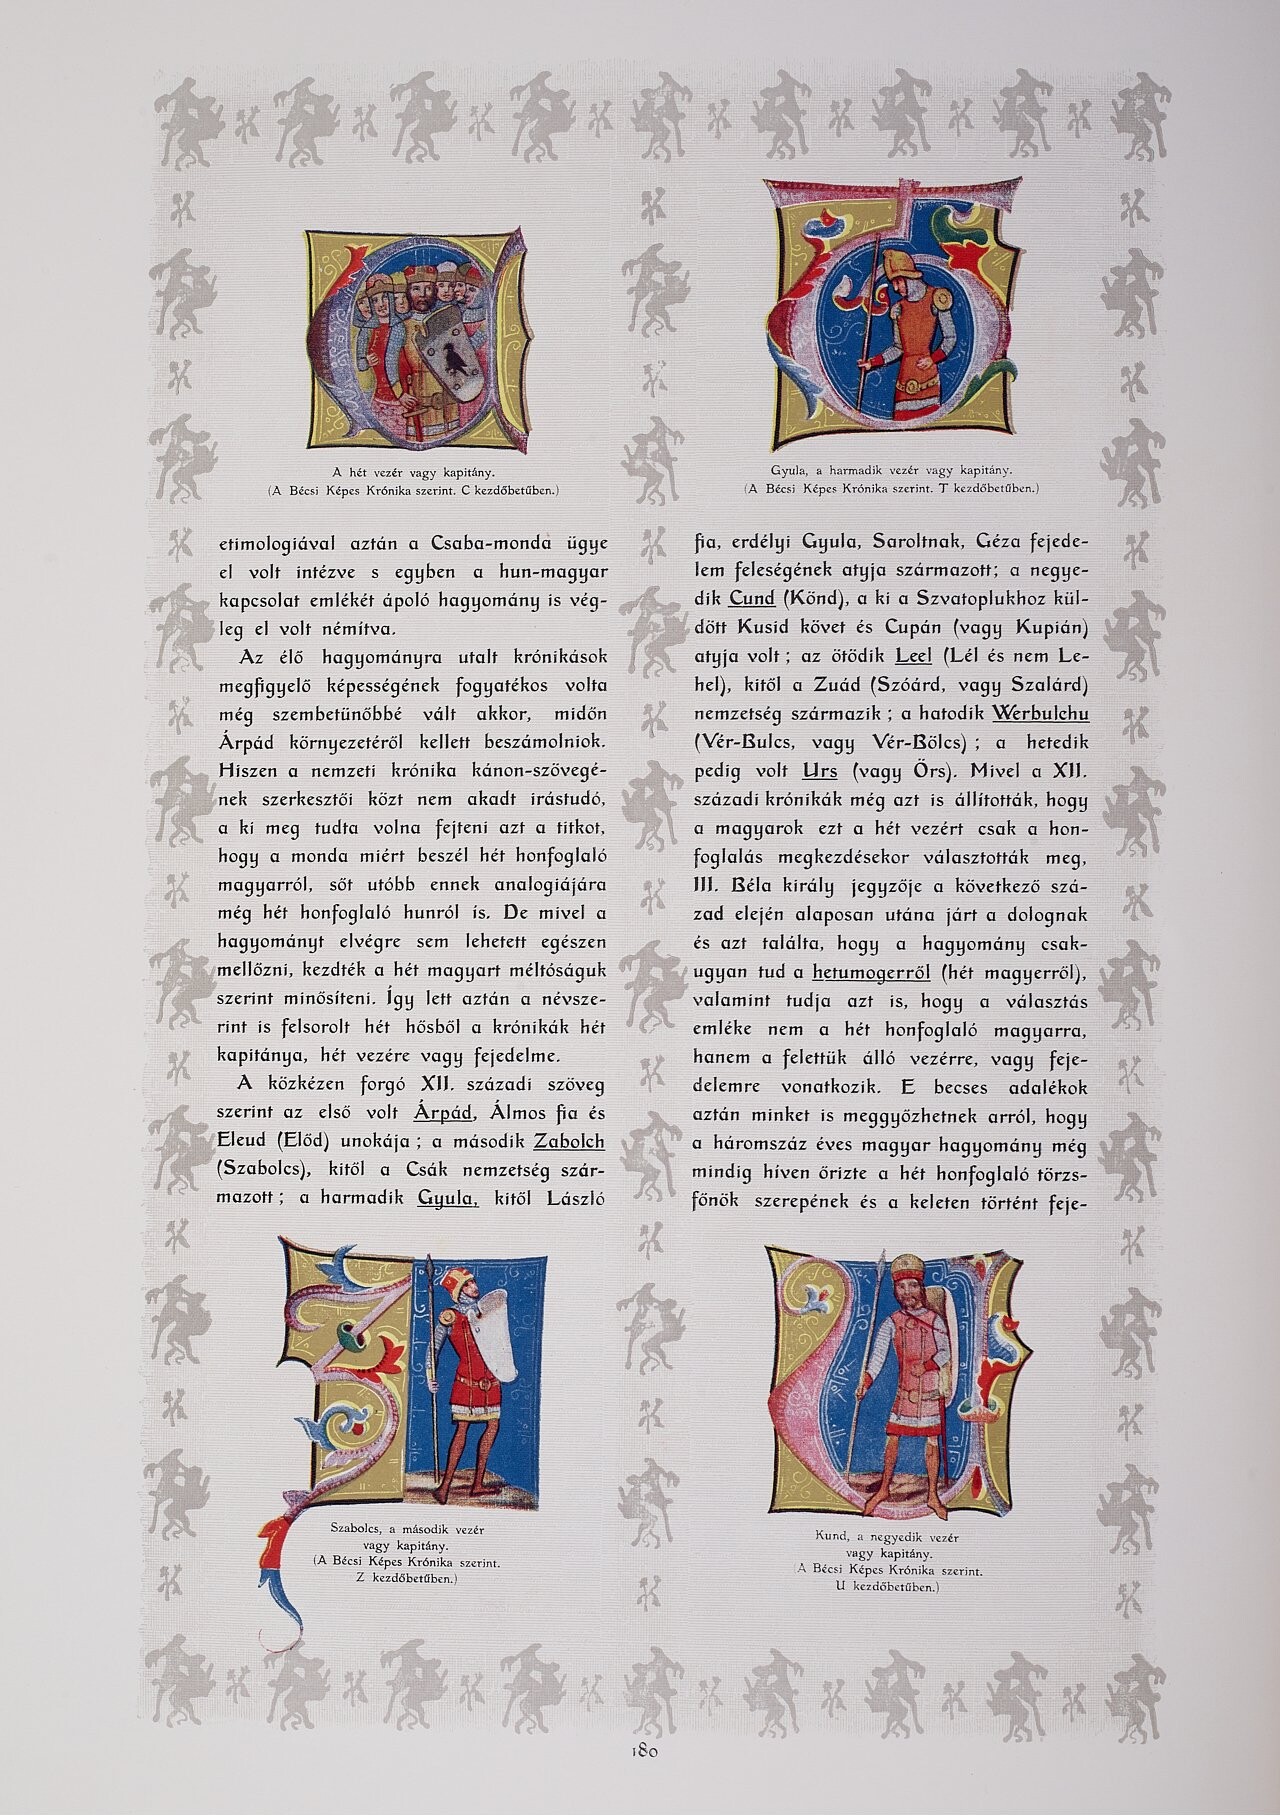 A hét vezér vagy kapitány.
(A Bécsi Képes Krónika szerint. C kezdőbetűben.)
etimologiával aztán a Csaba-monda ügye
el volt intézve s egyben a hun-magyar
kapcsolat emlékét ápoló hagyomány is vég-
leg el volt némítva.
Az élő hagyományra utalt krónikások
megfigyelő képességének fogyatékos volta
még szembetünőbbé vált akkor, midőn
Árpád környezetéről kellett beszámolniok.
Hiszen a nemzeti krónika kánon-szövegé-
nek szerkesztői közt nem akadt irástudó,
a ki meg tudta volna fejteni azt a titkot,
hogy a monda miért beszél hét honfoglaló
magyarról, sőt utóbb ennek analogiájára
még hét honfoglaló hunról is. De mivel a
hagyományt elvégre sem lehetett egészen
mellőzni, kezdték a hét magyart méltóságuk
szerint minősíteni. Így lett aztán a névsze-
rint is felsorolt hét hősből a krónikák hét
kapitánya, hét vezére vagy fejedelme.
A közkézen forgó XII. századi szöveg
szerint az első volt Árpád, Álmos fia és
Eleud (Előd) unokája ; a második Zabolch
(Szabolcs), kitől a Csák nemzetség szár-
mazott ; a harmadik Gyula, kitől László
Szabolcs, a második vezér
vagy kapitány.
(A Bécsi Képes Krónika szerint.
Z kezdőbetűben.)
Gyula, a harmadik vezér vagy kapitány.
(A Bécsi Képes Krónika szerint. T kezdőbetűben.)
fia, erdélyi Gyula, Saroltnak, Géza fejede-
lem feleségének atyja származott; a negye-
dik Cund (Könd), a ki a Szvatoplukhoz kül-
dött Kusid követ és Cupán (vagy Kupián)
atyja volt ; az ötödik Leel (Lél és nem Le-
hel), kitől a Zuád (Szóárd, vagy Szalárd)
nemzetség származik ; a hatodik Werbulchu
(Vér-Bulcs, vagy Vér-Bölcs) ; a hetedik
pedig volt Urs (vagy Örs). Mivel a XII.
századi krónikák még azt is állították, hogy
a magyarok ezt a hét vezért csak a hon-
foglalás megkezdésekor választották meg,
III. Béla király jegyzője a következő szá-
zad elején alaposan utána járt a dolognak
és azt találta, hogy a hagyomány csak-
ugyan tud a hetumogerről (hét magyerről),
valamint tudja azt is, hogy a választás
emléke nem a hét honfoglaló magyarra,
hanem a felettük álló vezérre, vagy feje-
delemre vonatkozik. E becses adalékok
aztán minket is meggyőzhetnek arról, hogy
a háromszáz éves magyar hagyomány még
mindig híven őrizte a hét honfoglaló törzs-
főnök szerepének és a keleten történt feje-
Kund, a negyedik vezér
vagy kapitány.
(A Bécsi Képes Krónika szerint.
U kezdőbetűben.)
180